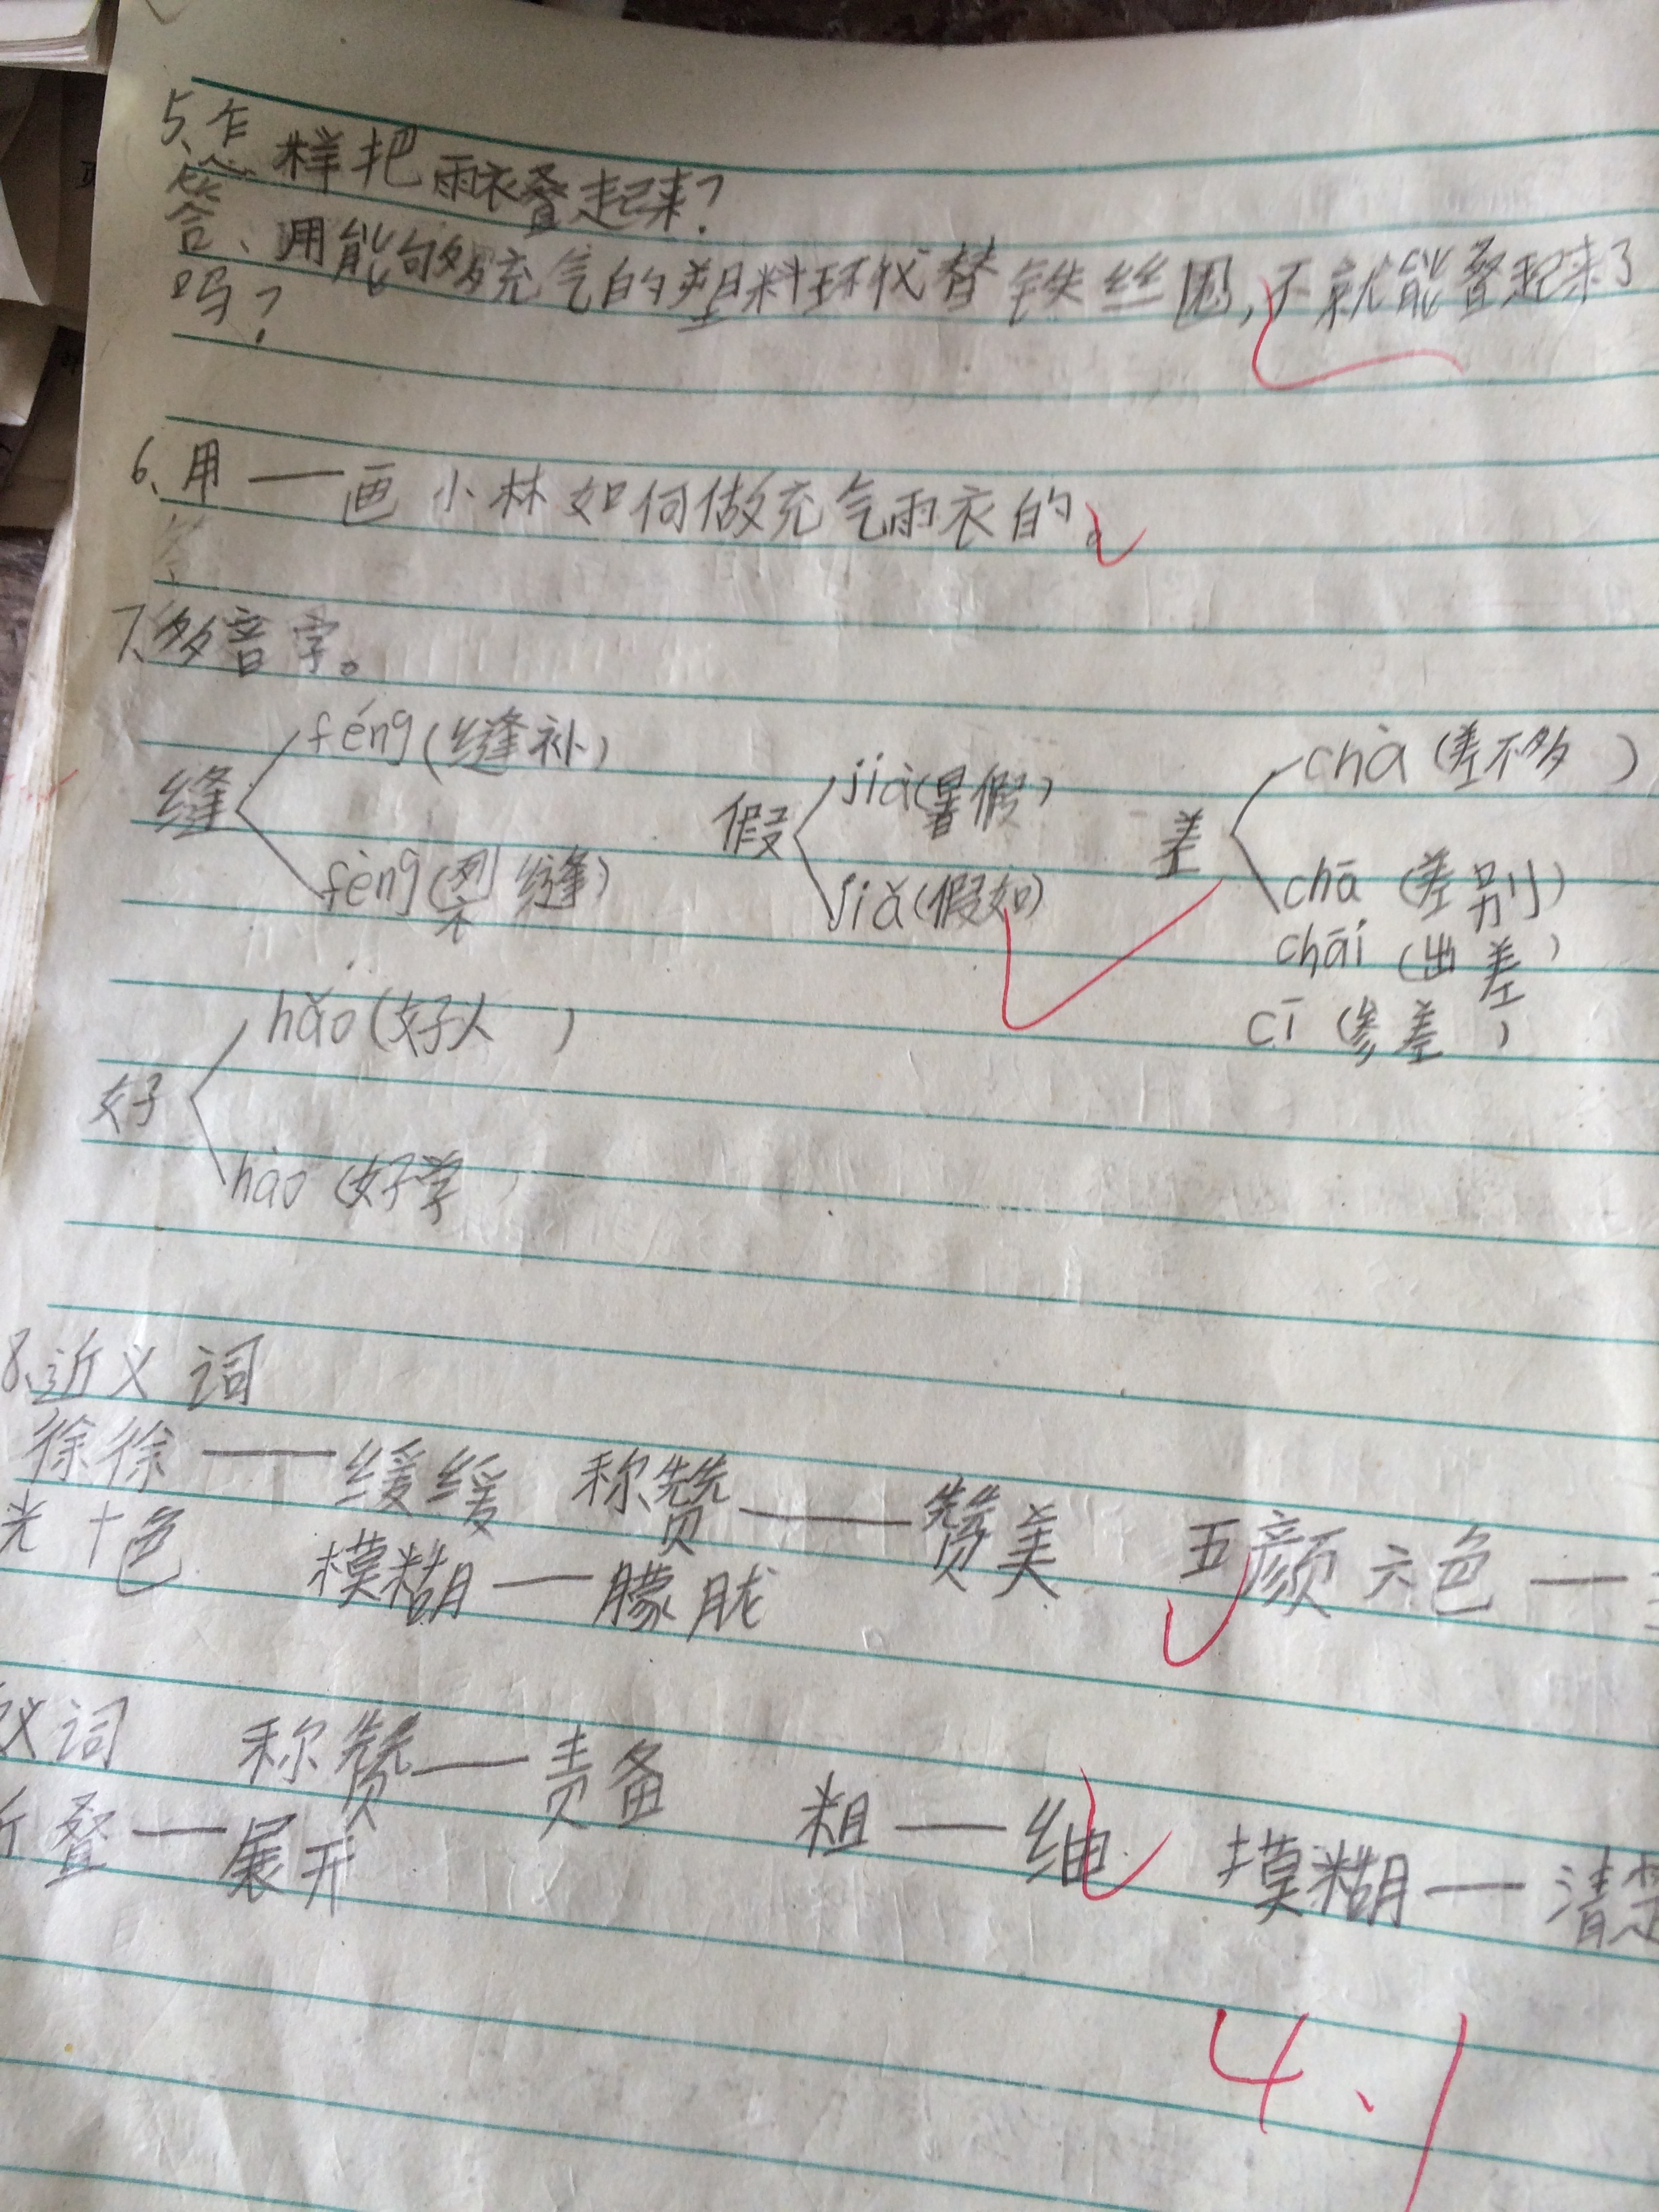 5、乍样把雨衣叠起来?
答、用能够充气的塑料环代替铁丝圈,不就能叠起来了
吗?
6、用——画小林如何做充气雨衣的。
7、多音字。
缝 féng(缝补) fèng(裂缝)
假 jià(暑假) jiǎ(假如)
差 chà(差不多) chā(差别) chāi(出差) cī(参差)
好 hǎo(好人) hào(好学)
8、近义词
徐徐——缓缓 称赞——赞美 五颜六色——
光十色 模糊——朦胧
义词 称赞——责备 粗——细 模糊——清楚
叠——展开
4、1